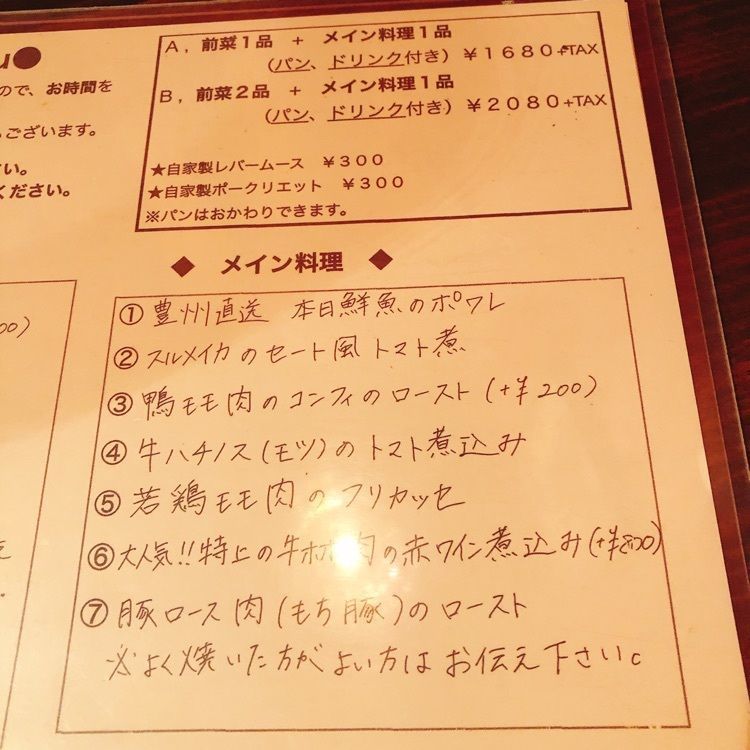 u●
A, 前菜1品 + メイン料理1品
(パン、ドリンク付き) ¥1680+TAX
ので、お時間を
B, 前菜2品 + メイン料理1品
(パン、ドリンク付き) ¥2080+TAX
ございます。
★自家製レバームース ¥300
さい。
★自家製ポークリエット ¥300
ください。
※パンはおかわりできます。
◆ メイン料理 ◆
①豊州直送 本日鮮魚のポワレ
②スルメイカのセート風トマト煮
③鴨モモ肉のコンフィのロースト(+¥200)
④牛ハチノス(モツ)のトマト煮込み
⑤若鶏モモ肉のフリカッセ
⑥大人気!!特上の牛ホホ肉の赤ワイン煮込み(+¥800)
⑦豚ロース肉(もち豚)のロースト
※よく焼いた方がよい方はお伝え下さい。